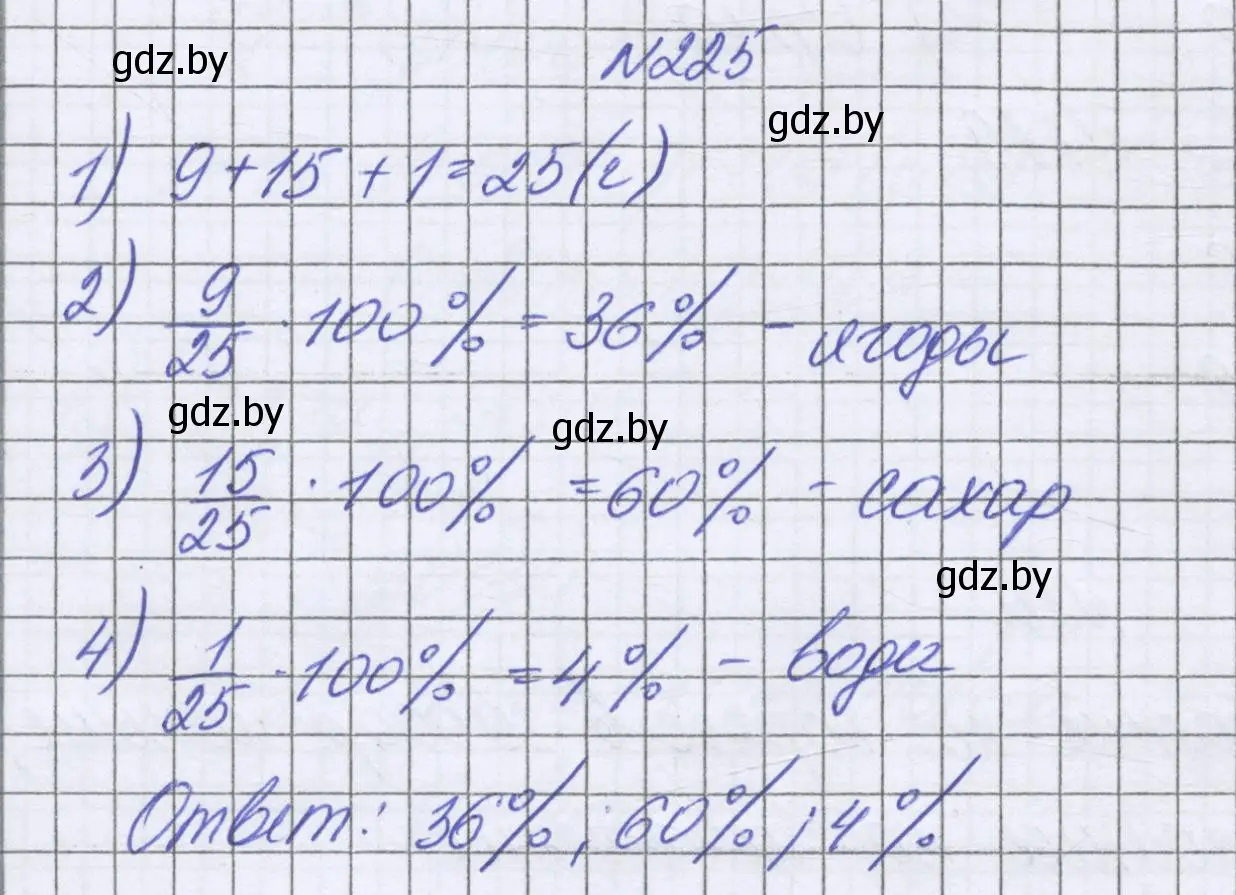 gdz.by
№225
gdz.by
1) 9+15+1=25(г)
2) 9/25 · 100% = 36% - ягоды
gdz.by
gdz.by
3) 15/25 · 100% = 60% - сахар
gdz.by
4) 1/25 · 100% = 4% - вода
Ответ: 36%; 60%; 4%